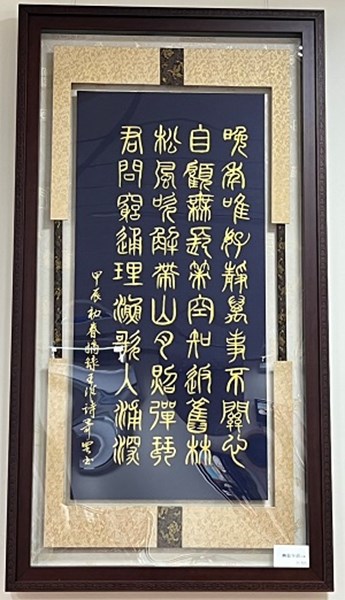 晚年唯好靜萬事不關心
自顧無長策空知返舊林
松風吹解帶山月照彈琴
君問窮通理漁歌入浦深
甲辰初春摘錄王維詩